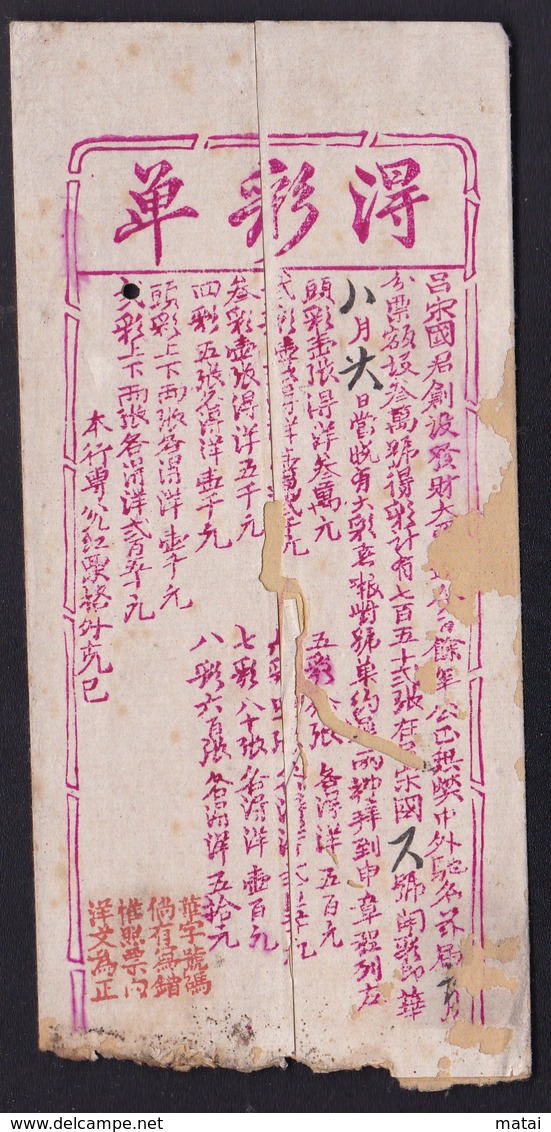 得彩单
呂宋國君創設發財大 百餘年公正無獘中外馳名茲屆 月
分票額設叁萬號得彩計有七百五十弍張在呂宋國 號開彩即華
八月 日當晚有大彩 報對號单約 兩禮拜到申章程列左
頭彩壹張得洋叁萬元
弍彩壹張得洋壹萬 元
叁彩壹張得洋五千元
四彩五張各得洋壹千元
頭彩上下兩張各得洋 元
弍彩上下兩張各得洋弍百 元
五彩 張各得洋五百元
七彩八十張各得洋壹百元
八彩六百張各得洋五拾元
本行專 紅票格外克己
華字號碼
倘有寫錯
惟照票内
洋文為正
matai